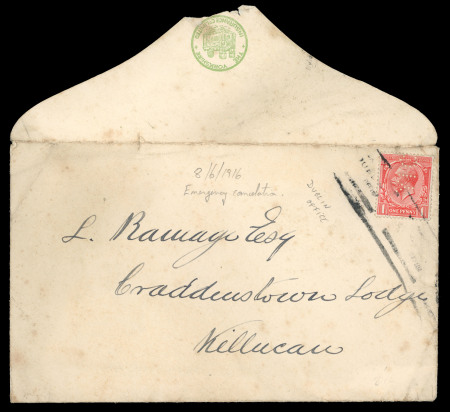 8/6/1916
Emergency cancellation.
DUBLIN
OFFICE
ONE PENNY
1 1
L. Ramage Esq
Craddenstown Lodge
Killucan